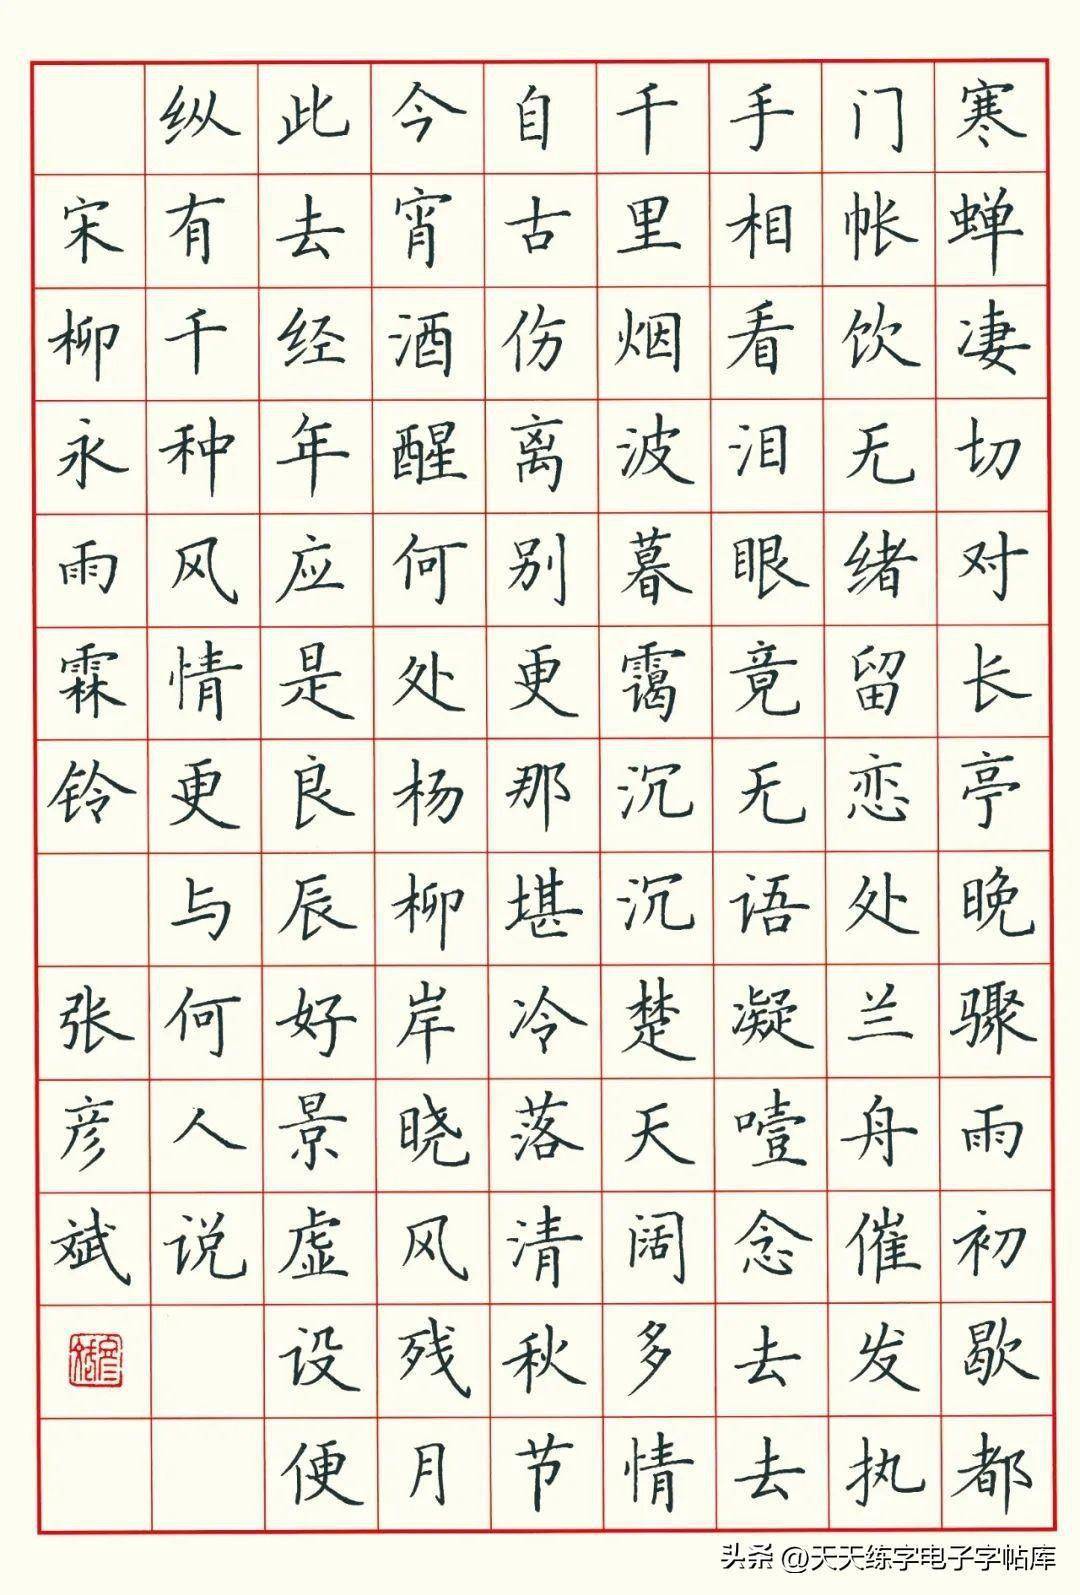 寒蝉凄切对长亭晚骤雨初歇都
门帐饮无绪留恋处兰舟催发执
手相看泪眼竟无语凝噎念去去
千里烟波暮霭沉沉楚天阔多情
自古伤离别更那堪冷落清秋节
今宵酒醒何处杨柳岸晓风残月
此去经年应是良辰好景虚设便
纵有千种风情更与何人说
宋柳永雨霖铃 张彦斌
彦斌
头条 @天天练字电子字帖库